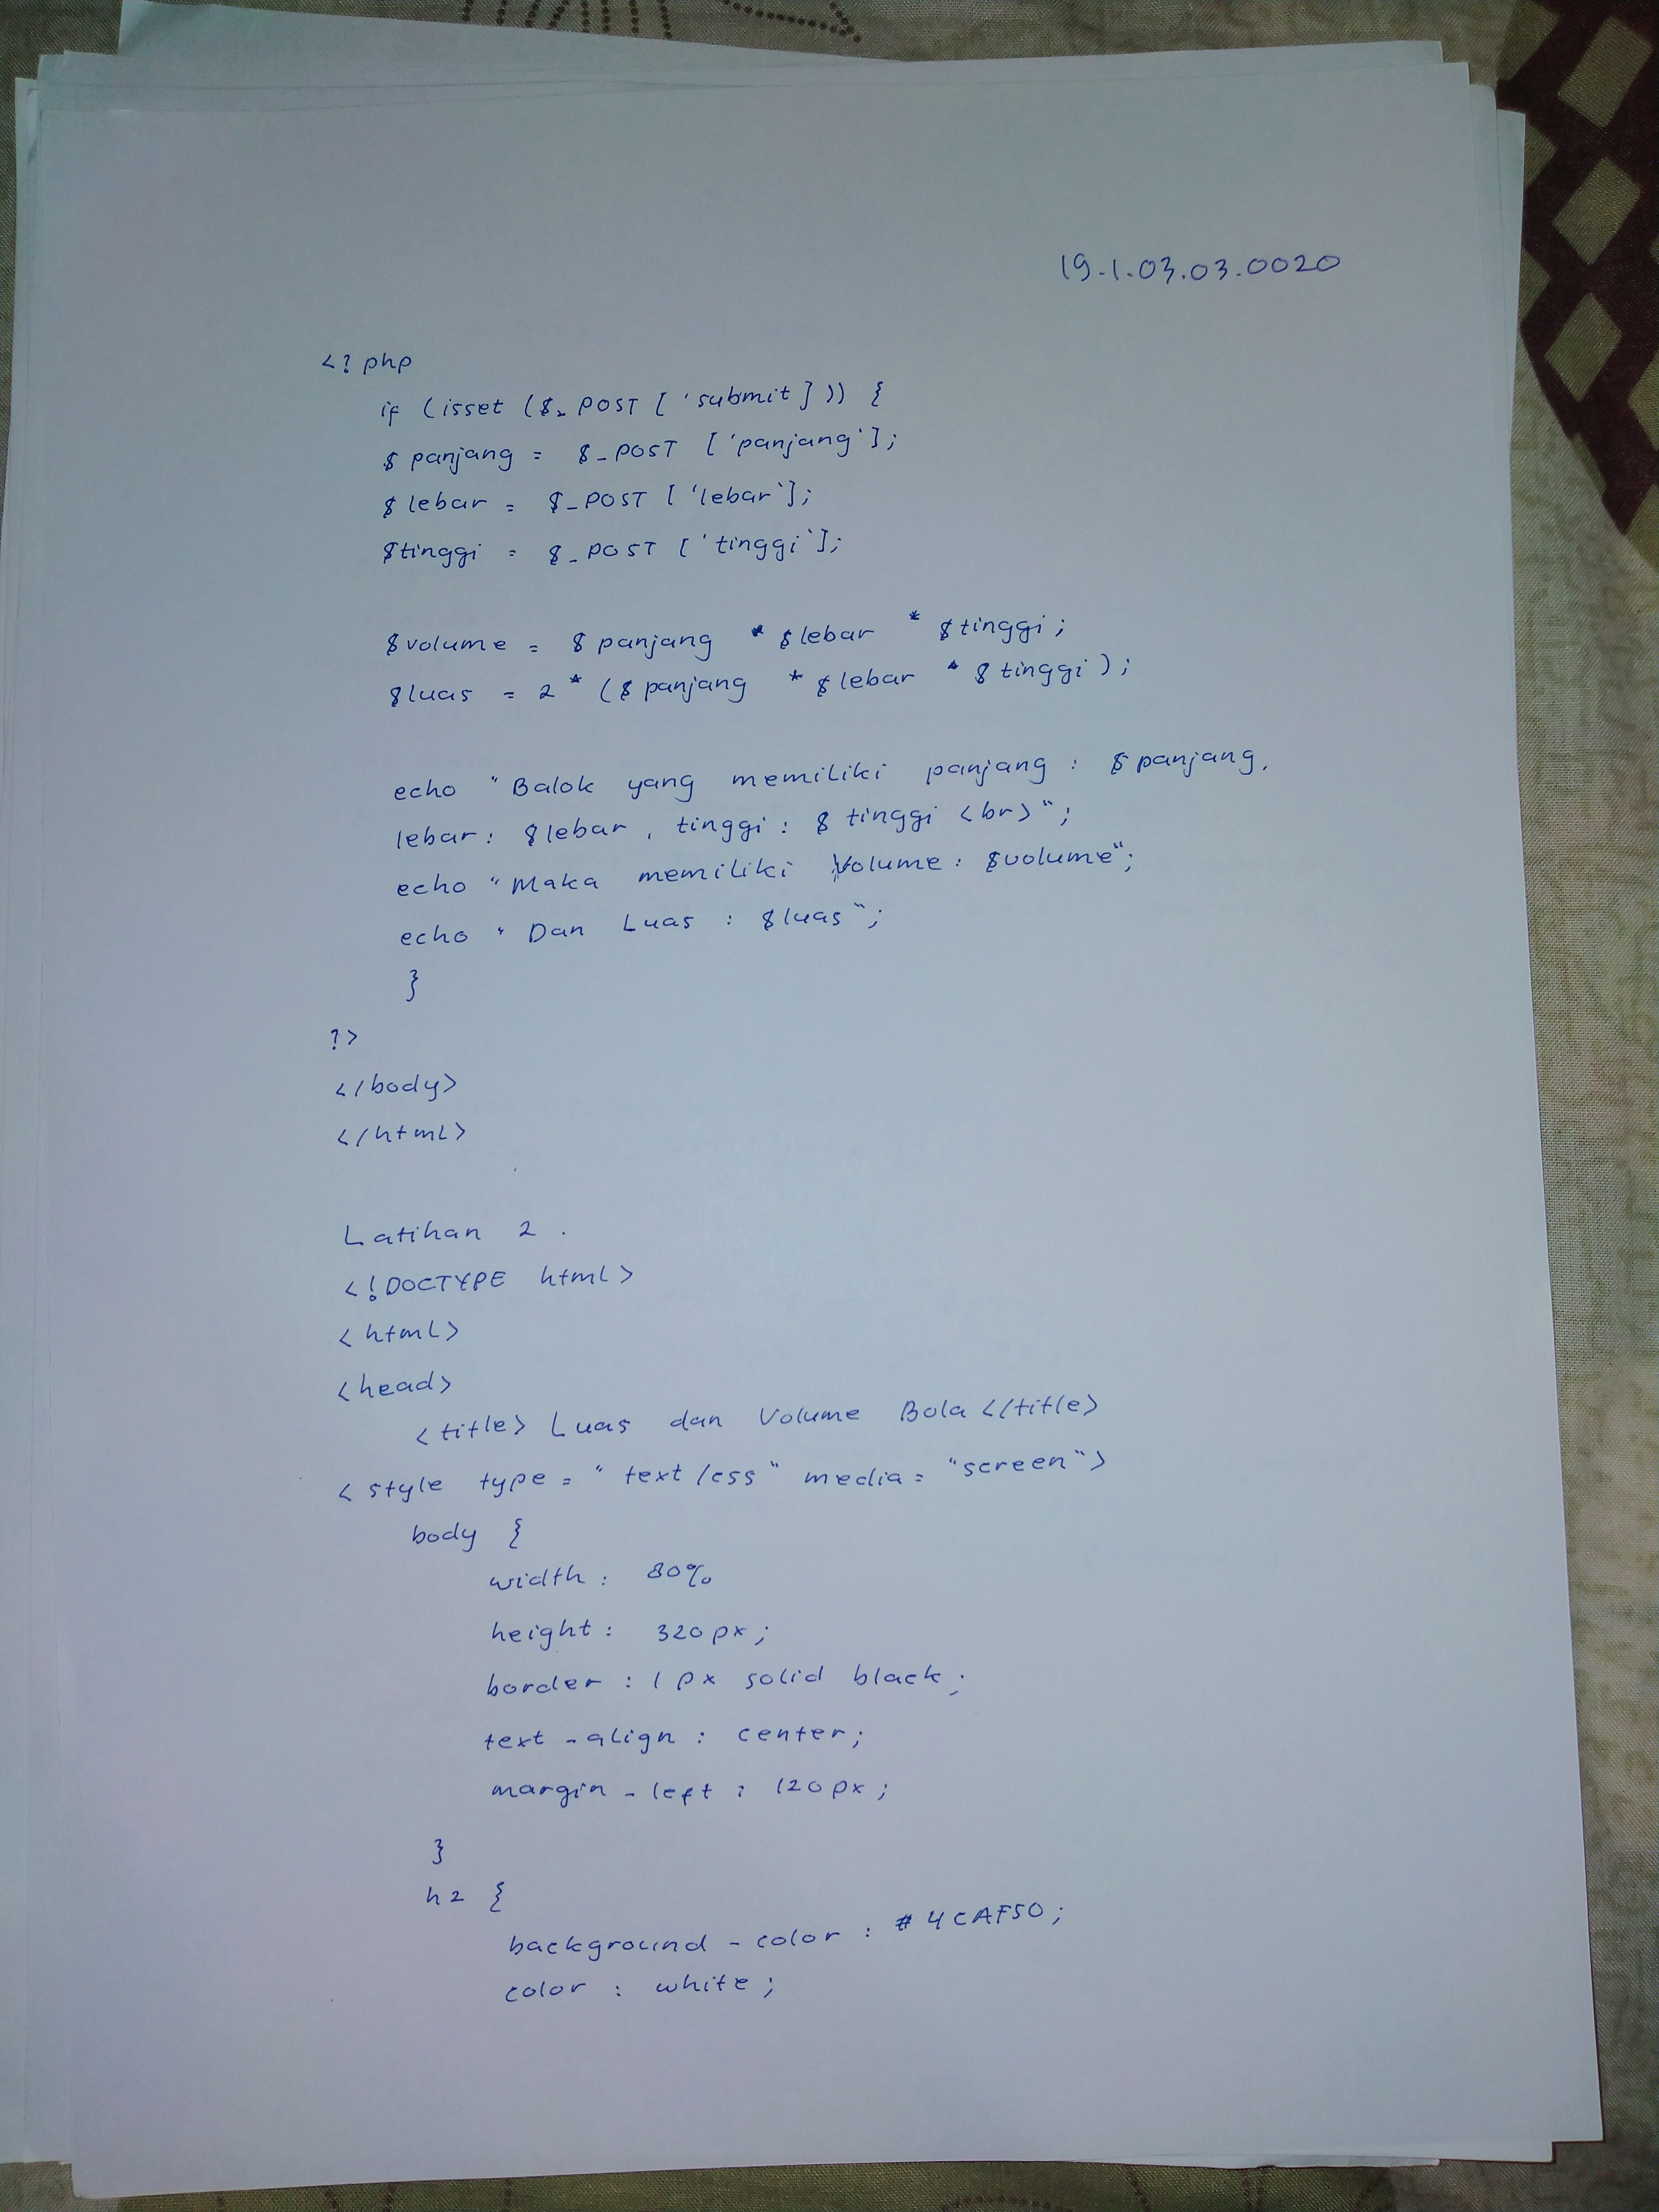 19.1.03.03.0020
<?php
if (isset ($_POST ['submit] )) {
$panjang = $_POST ['panjang'];
$lebar = $_POST ['lebar'];
$tinggi = $_POST ['tinggi'];
$volume = $panjang * $lebar * $tinggi;
$luas = 2 * ($panjang * $lebar * $tinggi);
echo "Balok yang memiliki panjang : $panjang,
lebar: $lebar, tinggi: $tinggi <br>";
echo "Maka memiliki Volume: $volume";
echo "Dan Luas : $luas";
}
?>
</body>
</html>
Latihan 2.
<!DOCTYPE html>
<html>
<head>
<title> Luas dan Volume Bola </title>
<style type = "text/css" media = "screen">
body {
width: 80%
height: 320px;
border : 1px solid black;
text-align : center;
margin-left : 120px;
}
h2 {
background-color : #4CAF50;
color : white;